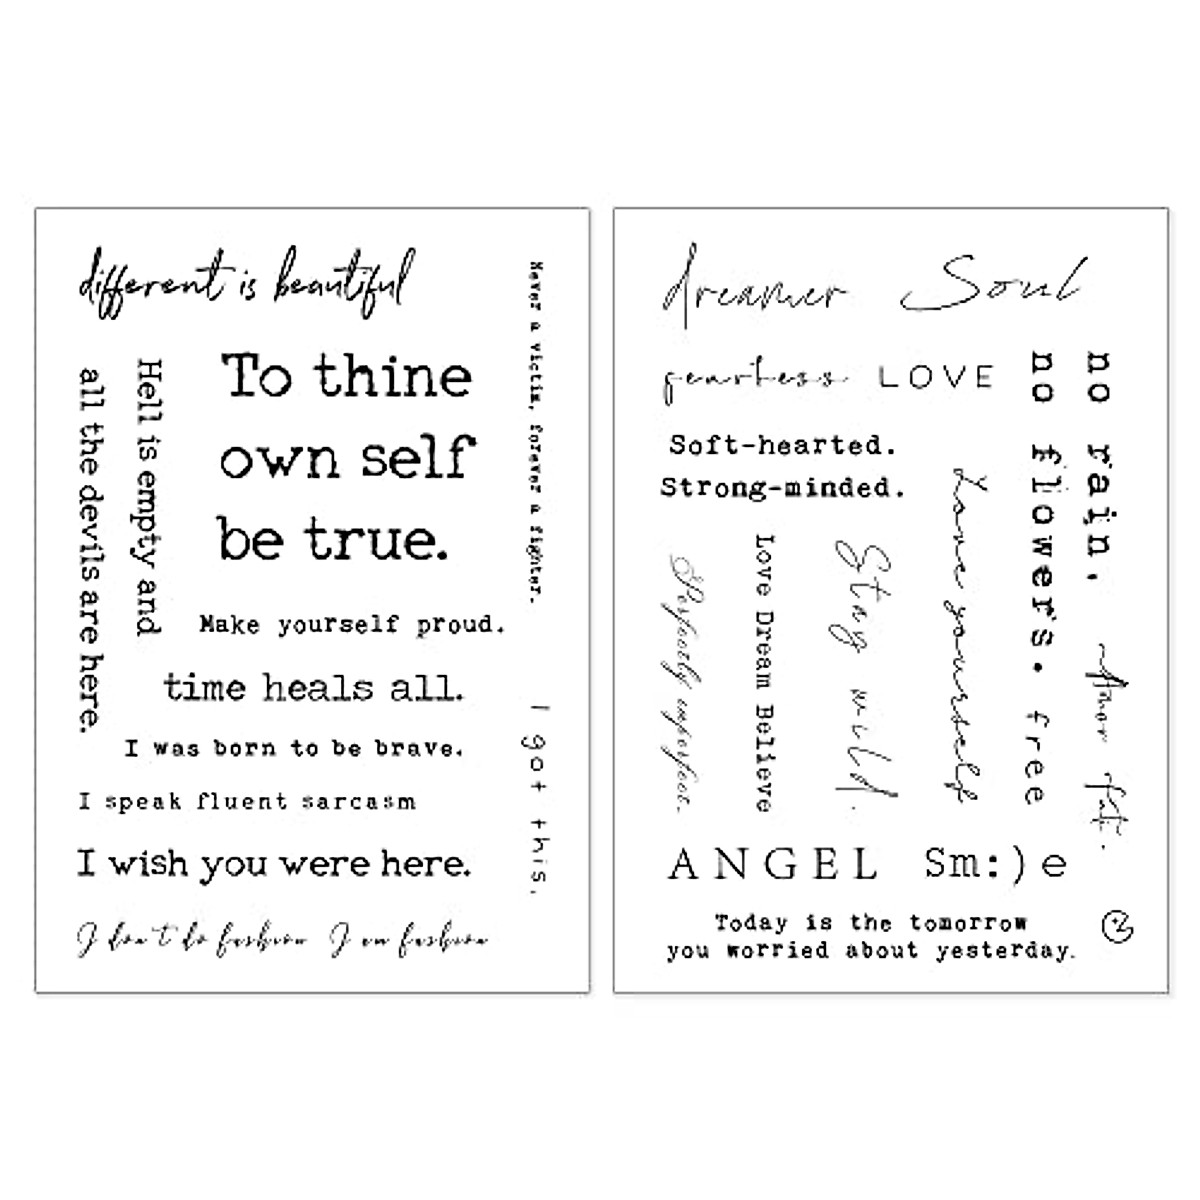 different is beautiful
Never a victim, forever a fighter.
Hell is empty and
all the devils are here.
To thine
own self
be true.
Make yourself proud.
time heals all.
I was born to be brave.
I speak fluent sarcasm
I wish you were here.
I got this.
I don't do fashion I am fashion
dreamer Soul
fearless LOVE
no rain.
no flowers.
Soft-hearted.
Strong-minded.
Love yourself
Stay wild.
Love Dream Believe
Perfectly imperfect.
free
Amor fati.
ANGEL Sm:)e
Today is the tomorrow
you worried about yesterday.